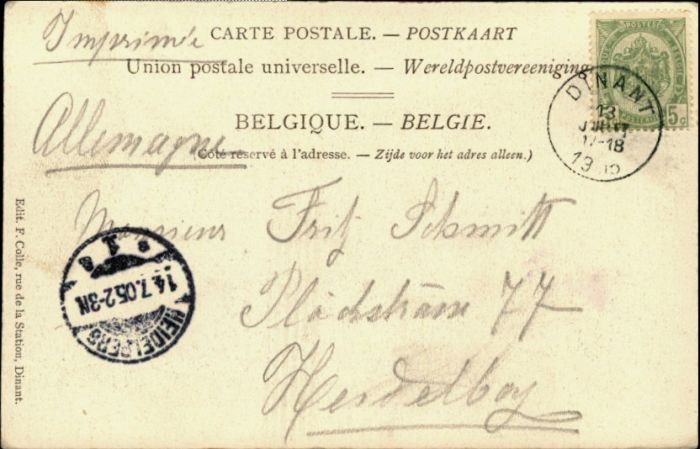 Imprimé
CARTE POSTALE. — POSTKAART
Union postale universelle. — Wereldpostvereeniging
BELGIQUE. — BELGIE.
Allemagne
(Côté réservé à l'adresse. — Zijde voor het adres alleen.)
POSTES
POSTERIJEN
5c
DINANT
13
JUILLET
17-18
1905
Monsieur Fritz Schmitt
Plöckstrasse 77
Heidelberg
HEIDELBERG
14.7.05.2-3N
* 1 a
Edit. F. Colle, rue de la Station, Dinant.